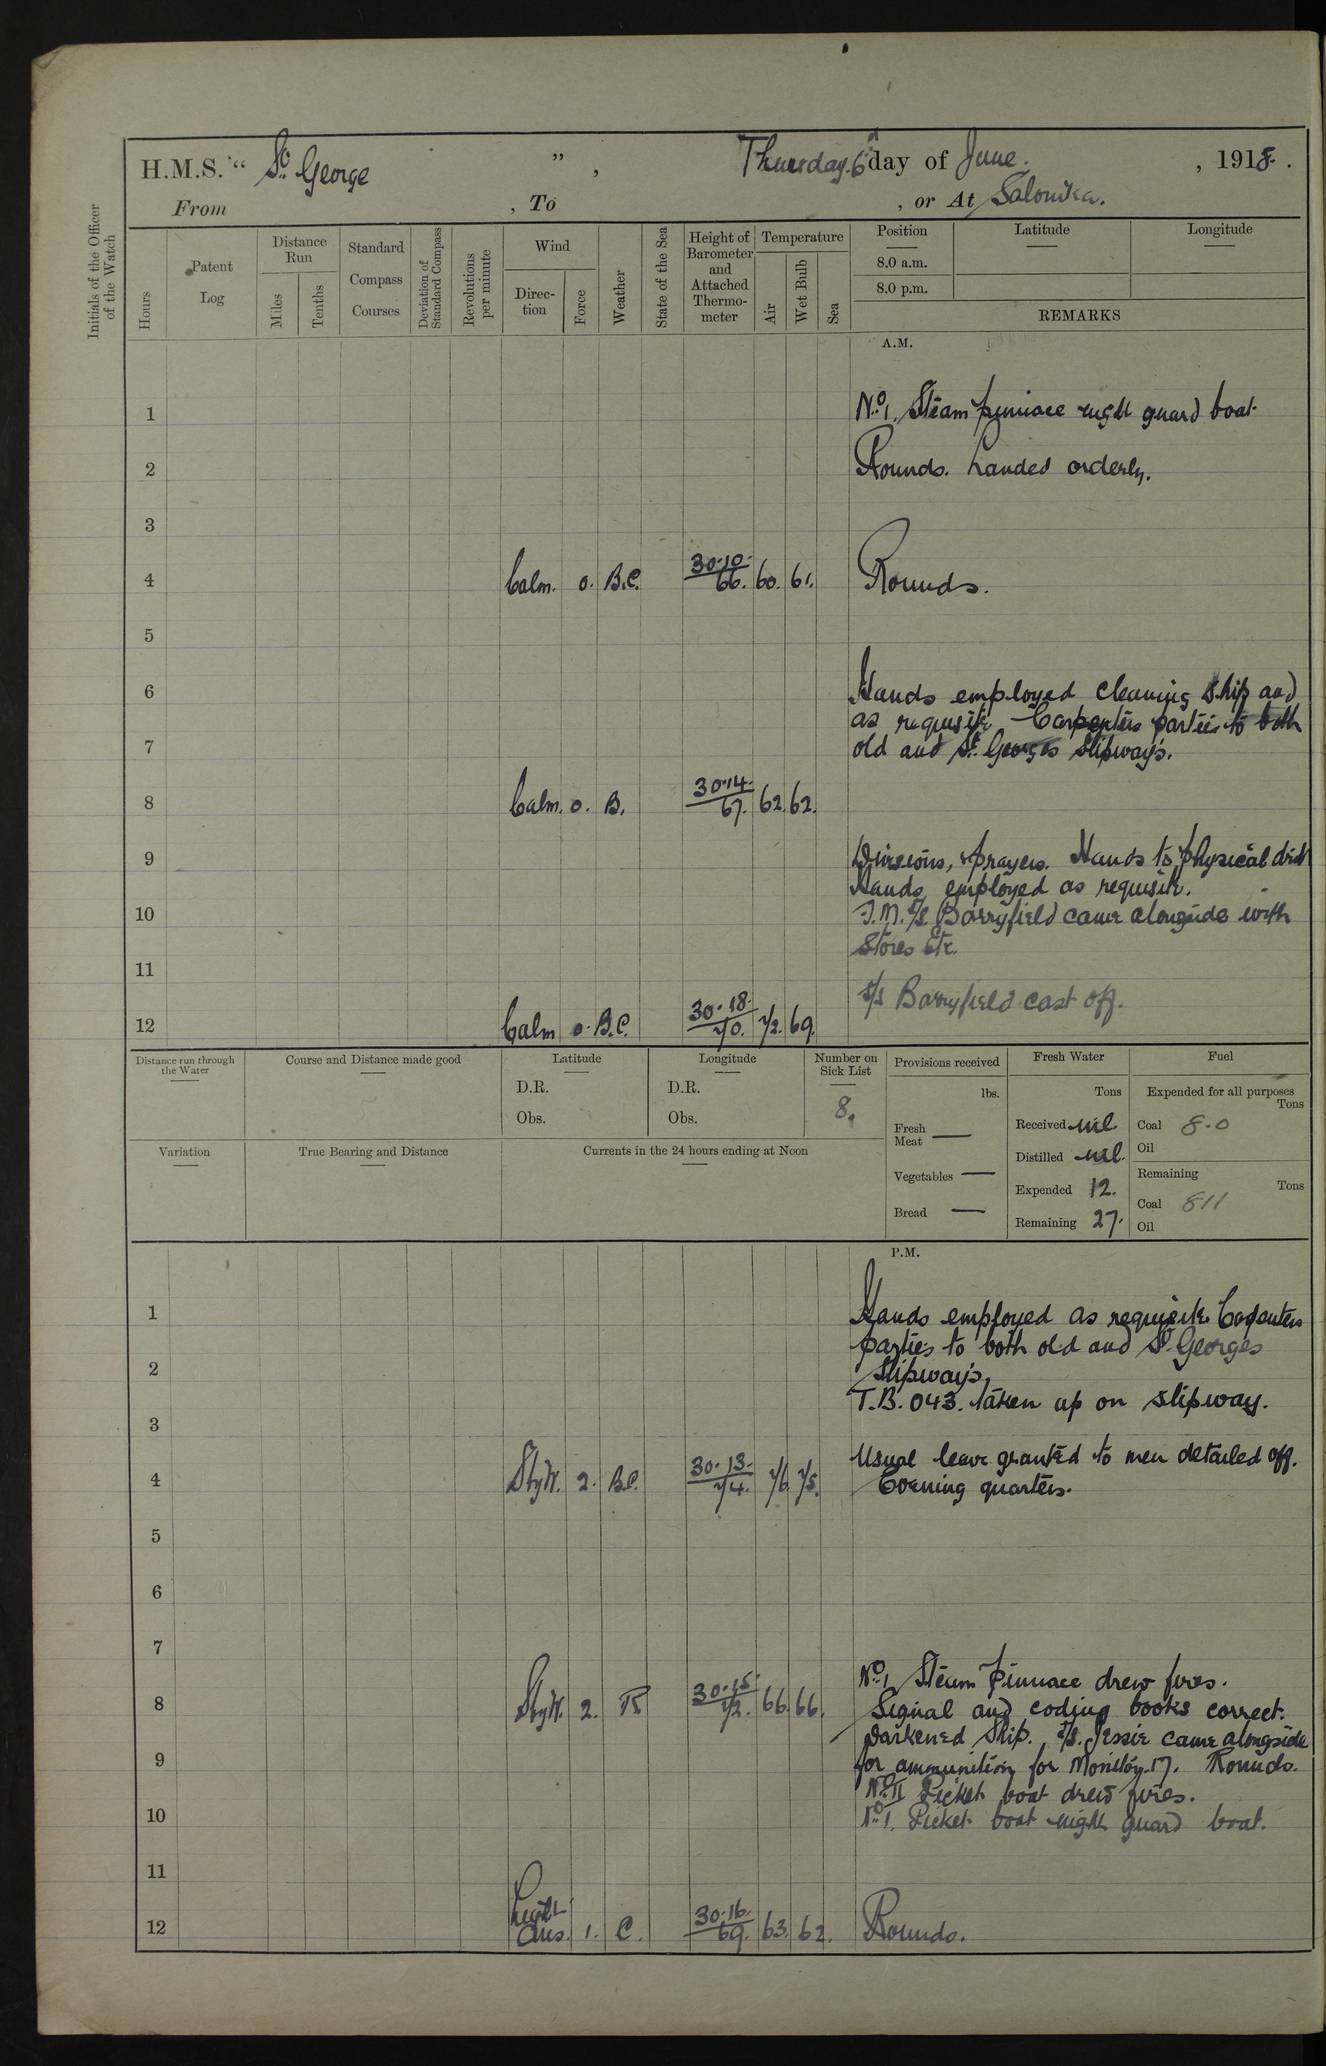 H.M.S. “ St. George ” , Thursday 6th day of June. , 1918.
From , To , or At Salonika.
Initials of the Officer of the Watch
Hours
Patent Log
Distance Run
Miles
Tenths
Standard Compass Courses
Deviation of Standard Compass
Revolutions per minute
Wind
Direction
Force
Weather
State of the Sea
Height of Barometer and Attached Thermometer
Temperature
Air
Wet Bulb
Sea
Position
8.0 a.m.
8.0 p.m.
Latitude
Longitude
REMARKS
A.M.
1 No. 1. Steam pinnace night guard boat.
2 Rounds. Landed orderly.
3
4 Calm. 0. B.C. 30.10. 66. 60. 61. Rounds.
5
6 Hands employed cleaning ship and
as requisite. Carpenters parties to both
7 old and St. Georges slipways.
8 Calm. 0. B. 30.14. 67. 62. 62.
9 Divisions, prayers. Hands to physical drill
Hands employed as requisite.
10 S/S Barryfield came alongside with
stores Etc.
11
S/S Barryfield cast off.
12 Calm 0. B.C. 30.18. 70. 72. 69.
Distance run through the Water
Course and Distance made good
Latitude
D.R.
Obs.
Longitude
D.R.
Obs.
Number on Sick List
8.
Provisions received
lbs.
Fresh Meat —
Vegetables —
Bread —
Fresh Water
Tons
Received nil.
Distilled nil.
Expended 12.
Remaining 27.
Fuel
Expended for all purposes
Tons
Coal 8.0
Oil
Remaining
Tons
Coal 811
Oil
Variation
True Bearing and Distance
Currents in the 24 hours ending at Noon
P.M.
1 Hands employed as requisite. Carpenters
parties to both old and St. Georges
2 slipways.
T.B. 043. taken up on slipway.
3
Usual leave granted to men detailed off.
4 2. B.C. 30.13. 74. 76. 75. Evening quarters.
5
6
7
No. 1 Steam pinnace drew fires.
8 2. B 30.15. 72. 66. 66. Signal and coding books correct.
Darkened ship. S/S. Jessie came alongside
9 for ammunition for Monitor 17. Rounds.
No. II Picket boat drew fires.
10 No. 1. Picket boat night guard boat.
11
12 Light airs. 1. C. 30.16. 69. 63. 62. Rounds.